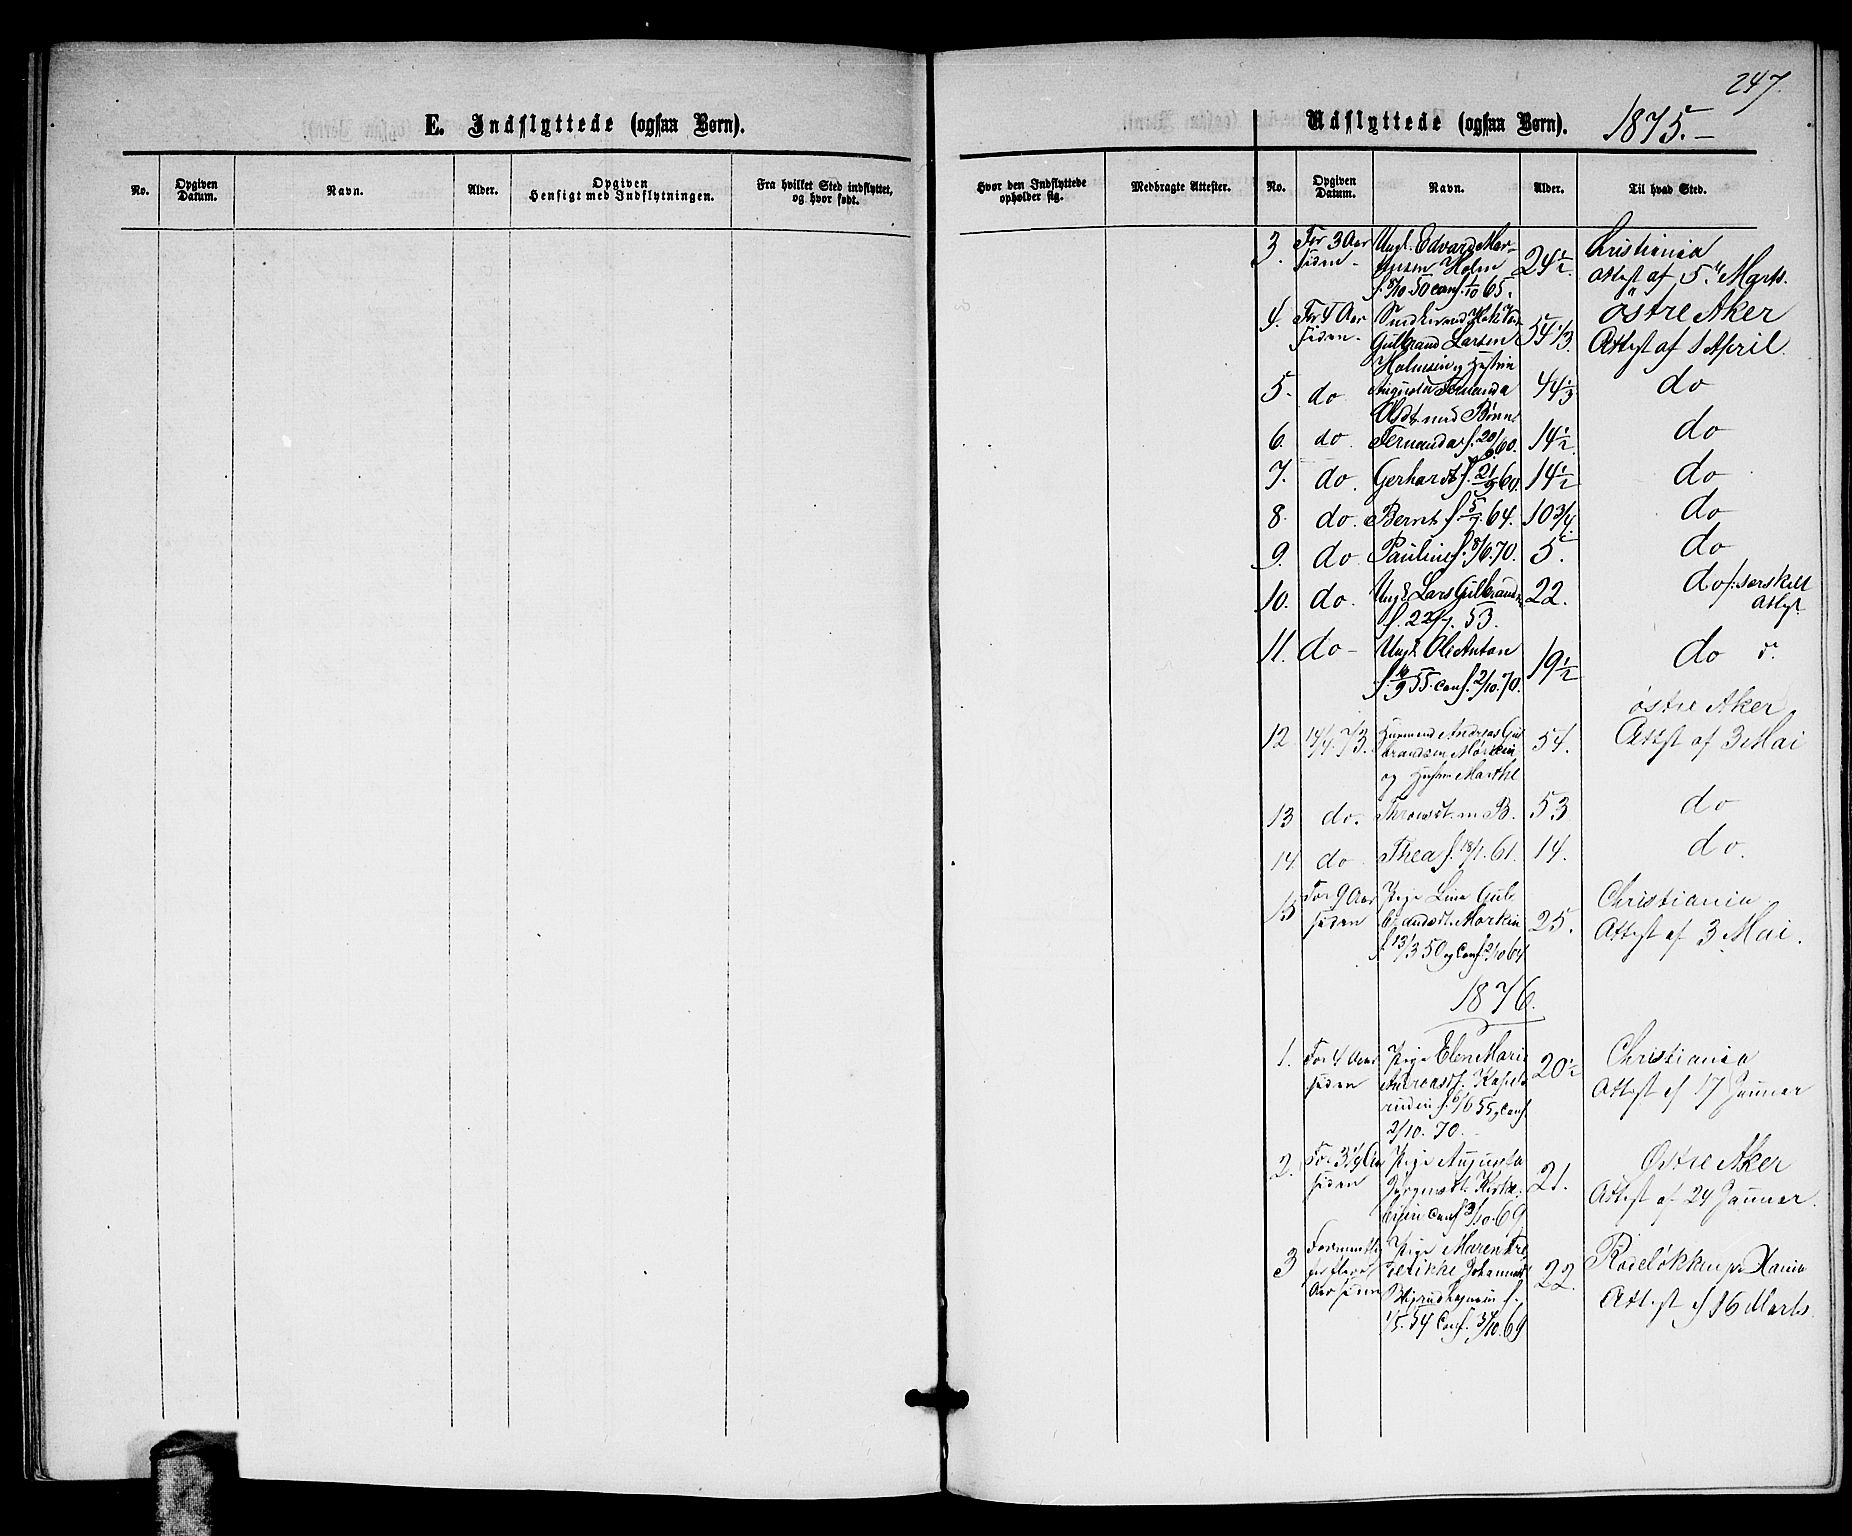 247.
E. Indflyttede (ogsaa Børn).
Udflyttede (ogsaa Børn). 1875.-
No. Opgiven Datum. Navn. Alder. Opgiven Hensigt med Indflytningen. Fra hvilket Sted indflyttet, og hvor født. Hvor den Indflyttede opholder sig. Medbragte Attester. No. Opgiven Datum. Navn. Alder. Til hvad Sted.
3. For 3 Aar Ungk. Edvard 24½ Christiania
siden - Holm Attest af 5. Marts.
f. 8/10 50 conf. 1/10 65.
4. For 4 Aar 54 1/3 Östre Aker
siden - Gulbrand Larsen Attest af 1 April.
Holmsen og Hustru
5. do Augusta Fernanda 44 1/3 do
med Børn
6. do Fernanda f. 60. 14½ do
7. do. Gerhardt f. 21/9 60. 14½ do
8. do. Bernt f. 5/7 64. 10 3/4 do
9. do Pauline f. 8/6. 70. 5. do
10. do. Ungk. Lars Gulbrands. 22. do særskilt
f. 22/7. 53. Attest
11. do - Ungk. Ole Anton 19½ do
f. 55. conf. 2/10. 70.
østre Aker
12 14/4 73. Andreas Gul 54. Attest af 3 Mai
brandsen
og Hustru Marthe
13 do. m B. 53 do
14. do Thea f. 18/1. 61. 14. do.
15 For 9 Aar Pige Lina Gul 25. Christiania
siden Attest af 3 Mai.
f. 13/3 50 og Conf. 2/10 64
1876.
1. For 4 Aar Pige Elen Marie 20½ Christiania
siden Andreasdt. Attest af 17 Januar
f. 6/6 55 og Conf.
2/10. 70.
2. For 3¼ Aar Pige Augusta 21. Østre Aker
siden Jørgensdt. Attest af 24 Januar.
Conf 3/10. 69
3 Formentlig Pige Maren Fre 22. Rodeløkken pr Xania
for flere derikke Johannesdt Attest af 16 Marts
Aar siden f.
1/5. 54 Conf. 3/10. 69